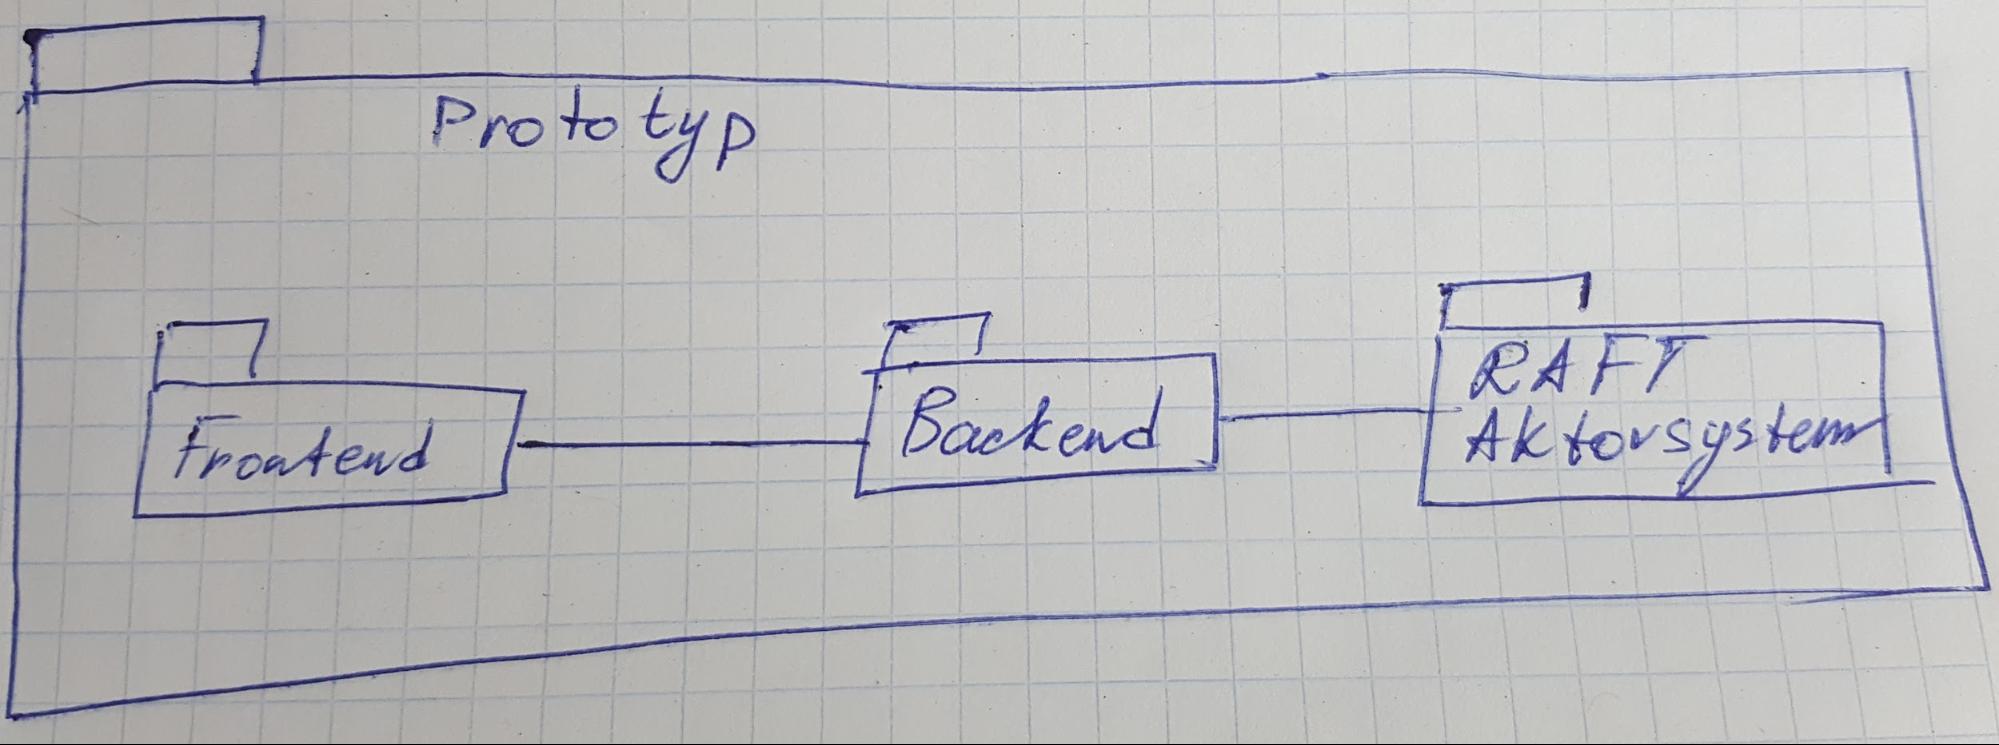 Prototyp
Frontend
Backend
RAFT
Aktorsystem